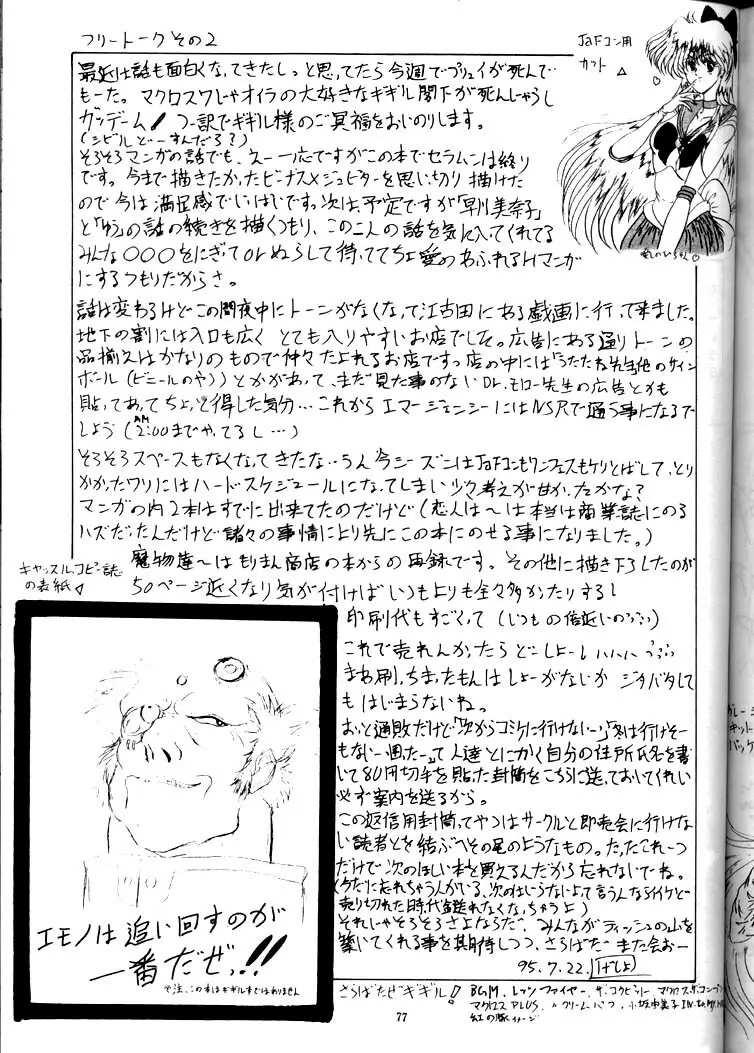 フリートーク その2
JaFコン用
カット△
最近は話も面白くなってきたしっと思ってたら今週でブリュイが死んで
もーた。マクロス7じゃオイラの大好きなギギル閣下が死んじゃうし
ガッデーム!つー訳でギギル様のご冥福をおいのりします。
(シビルどーすんだろ?)
そろそろマンガの話でも、えー一応ですがこの本でセラムンは終り
です。今まで描きたかったビーナス×ジュピターを思い切り描けた
ので今は満足感でいっぱいです。次は、予定ですが「早川美奈子」
と「ゆう」の話の続きを描くつもり、この二人の話を気に入ってくれてる
みんな○○○をにぎってorぬらして待っててちょ愛のあふれるHマンガ
にするつもりだからさ。
話は変わるけどこの間夜中にトーンがなくなって江古田にある戯画に行って来ました。
地下の割には入口も広く とても入りやすいお店でした。広告にある通りトーンの
品揃えはかなりのもので仲々たよれるお店です。店の中には「うたたね先生他のサイン
ボール(ビニールのやつ)とかがあって、まだ見た事のないDr.モロー先生の広告とかも
貼ってあってちょっと得した気分…これからエマージェンシーにはNSRで通う事になるで
しょう(AM2:00までやってるし…)
そろそろスペースもなくなってきたな…うん今シーズンはJaFコンもワンフェスもケリとばして、とり
かかったワリにはハードスケジュールになってしまい少々考えが甘かったかな?
マンガの内2本はすでに出来てたのだけど(恋人は〜は本当は商業誌にのる
ハズだったんだけど諸々の事情により先にこの本にのせる事になりました。)
魔物達〜はもりまん商店の本からの再録です。その他に描き下ろしたのが
50ページ近くなり気が付けばいつもよりも全々多かったりするし
キャッスル、コピー誌
の表紙
印刷代もすごくって(いつもの倍近いのぅぅぅ)
これで売れんかったらどーしよーしハハハ ぅぅぅ
まぁ刷っちまったもんはしょーがないかジタバタして
もはじまらないね。
おっと通販だけど「次からコミケに行けないー」「冬は行けそー
もないー困ったー」って人達とにかく自分の住所氏名を書
いて80円切手を貼った封筒をこちらに送っておいてくれい
必ず案内を送るから。
この返信用封筒ってやつはサークルと即売会に行けな
い読者とを結ぶへその尾のようなもの。たったこれ一つ
だけで次のほしい本を買えるんだから忘れないでね。
(今だに忘れちゃう人がいる、次のはいらないよって言うんならイイケど
売り切れた時代金送れなくなっちゃうよ)
それじゃそろそろさよならだ、みんながティッシュの山を
築いてくれる事を期待しつつ、さらばだ また会おー
95.7.22.
エモノは追い回すのが
一番だぜっ!!
※注、この本はギギル本ではありません
さらばだぜギギル!
BGM、レッツファイヤー、ザ・コクピット、マクロス・ザ・コンプ
マクロスPLUS、〃クリームパフ、小坂由美子IN
紅の豚イメージ
77
ガレージ
キット
パッケ